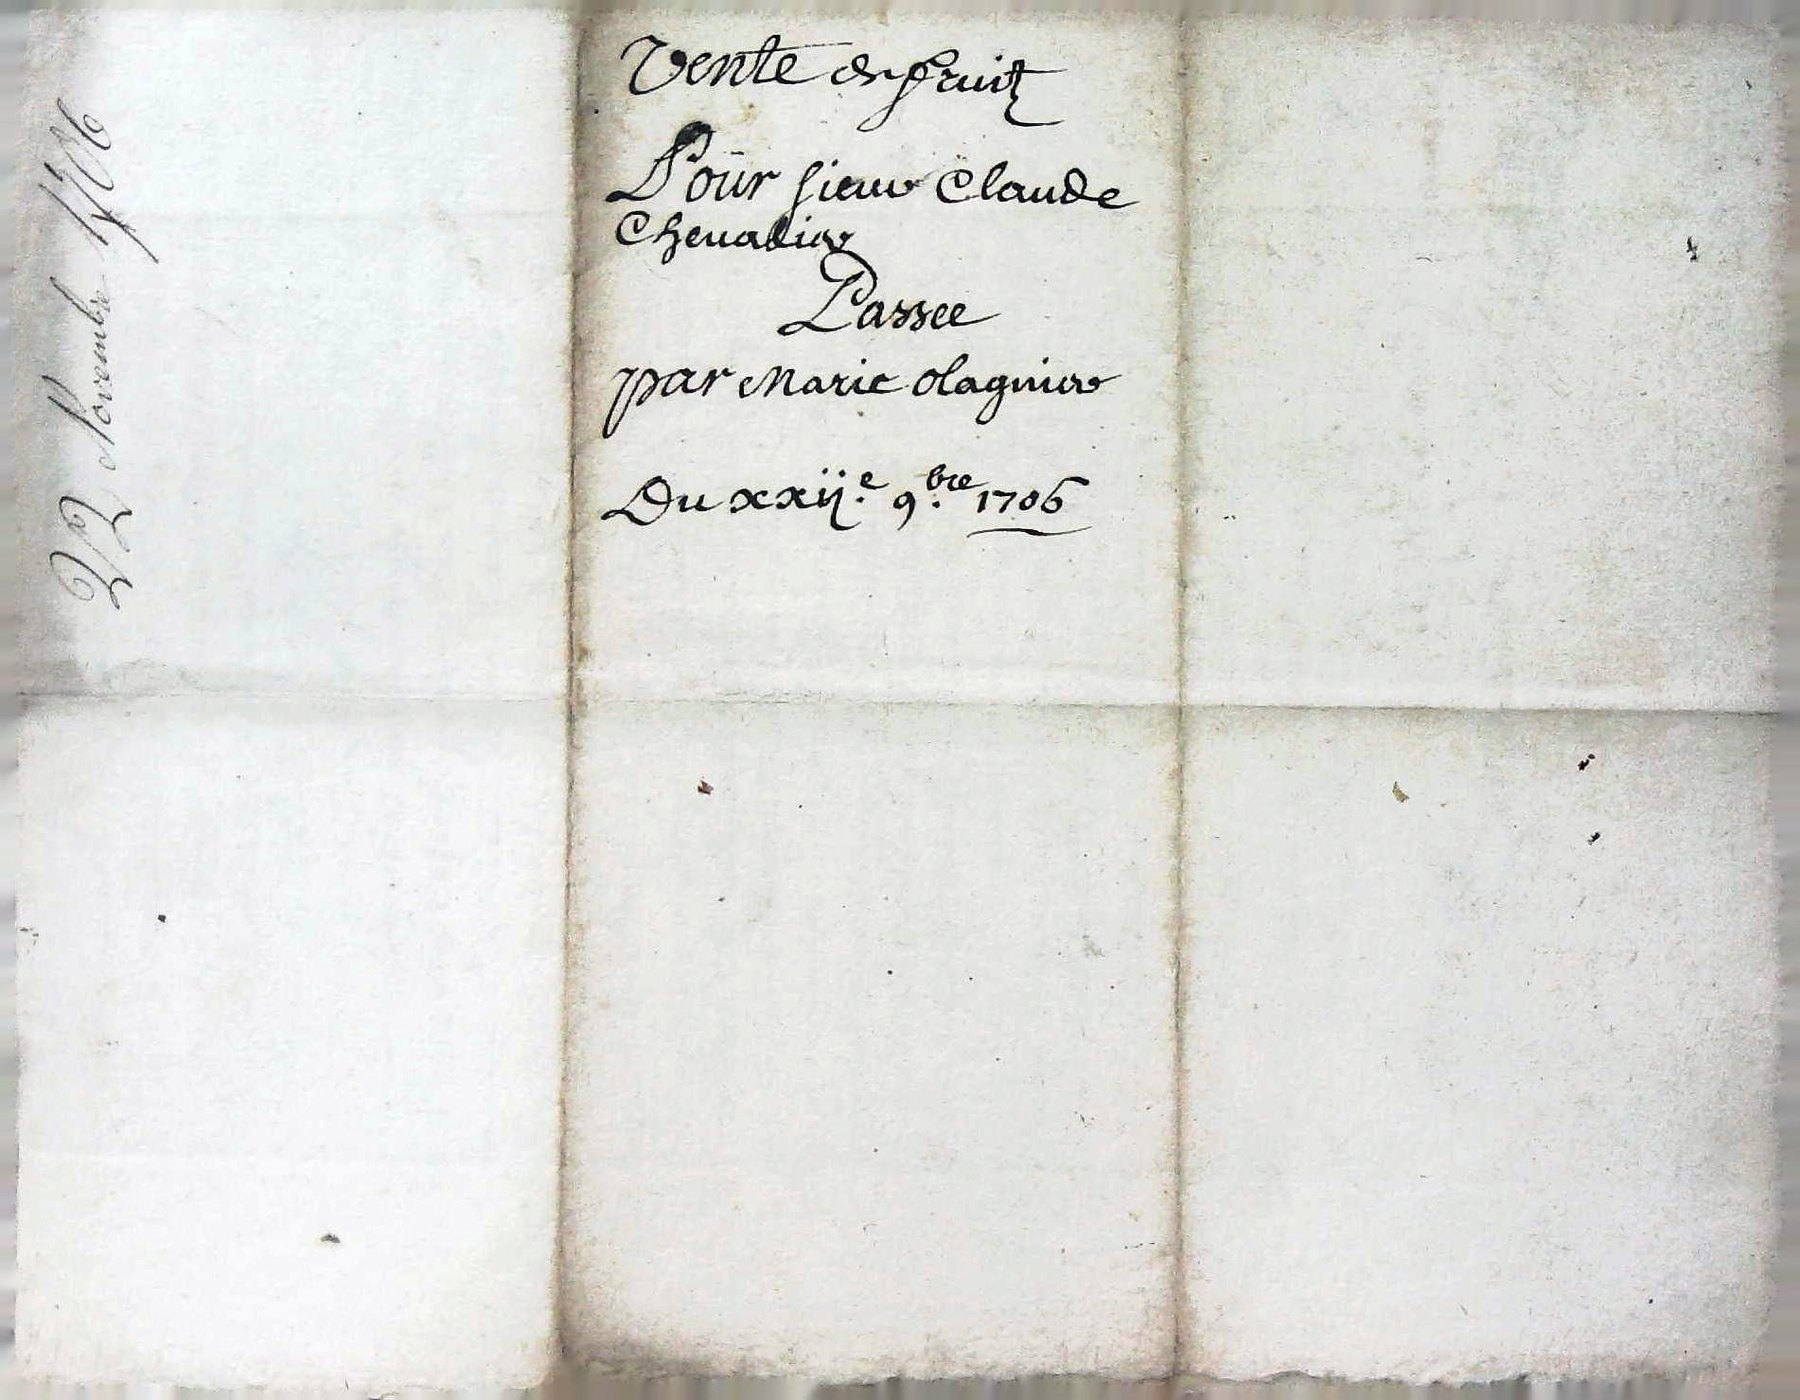 Vente de fruitz
Pour sieur Claude
Chevalier
Passee
par Marie olagnier
Du xxije. 9.bre 1706
22 Novembre 1706